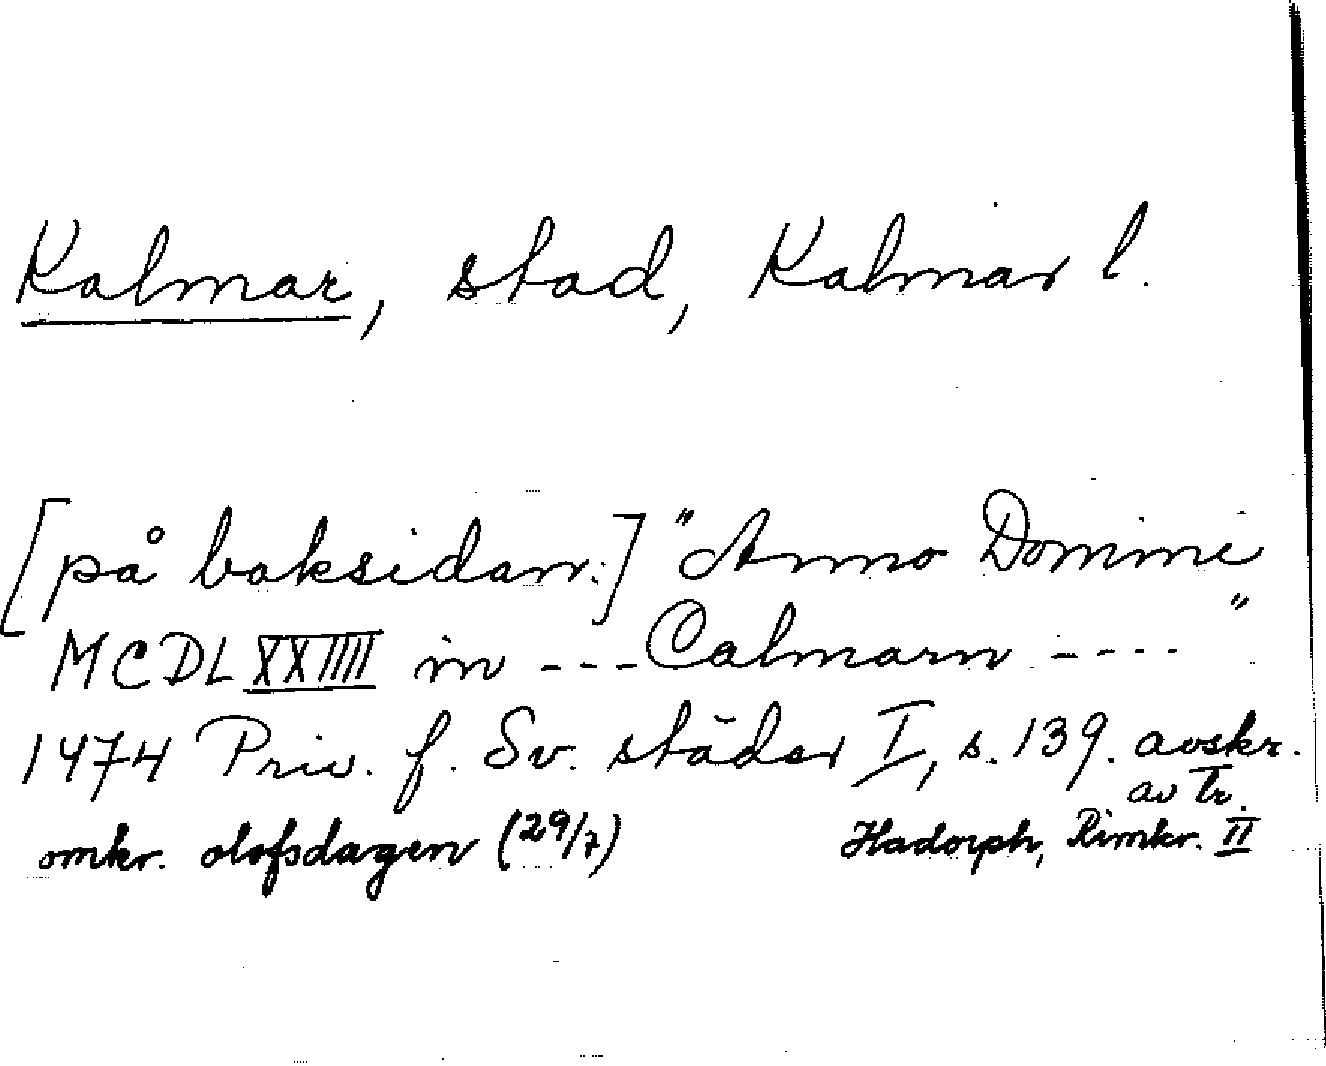 Kalmar, stad, Kalmar l.
[på baksidan:] "Anno Domini
MCDLXXIIII in --- Calmarn ---- "
1474 Priv. f. Sv. städer I, s. 139. avskr.
av tr.
omkr. olofsdagen (29/7) Hadorph, Rimkr. II